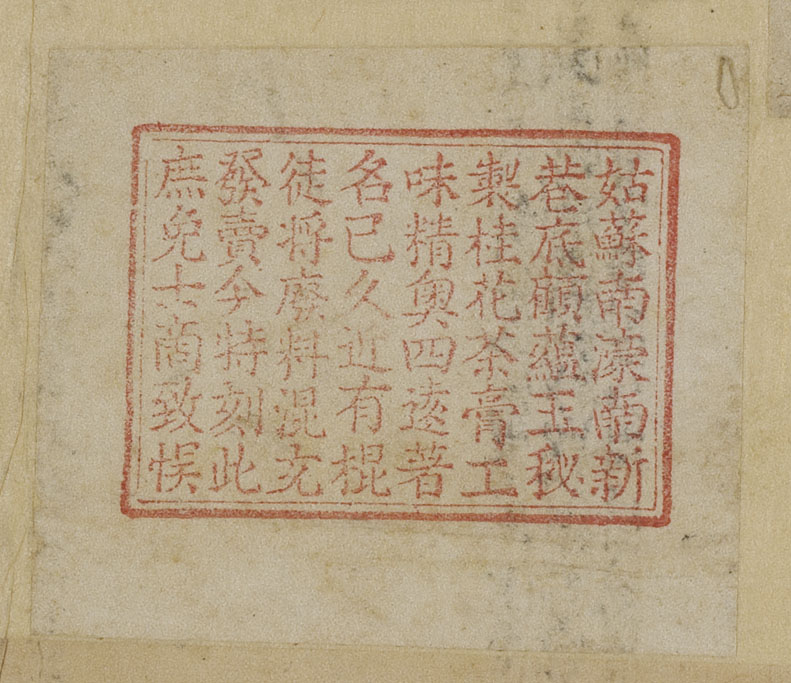 姑蘇南濠南新
巷底顧蘊玉秘
製桂花茶膏工
味精奥四逺著
名已久近有棍
徒将廢料混充
發賣今特刻此
庶免士商致悮